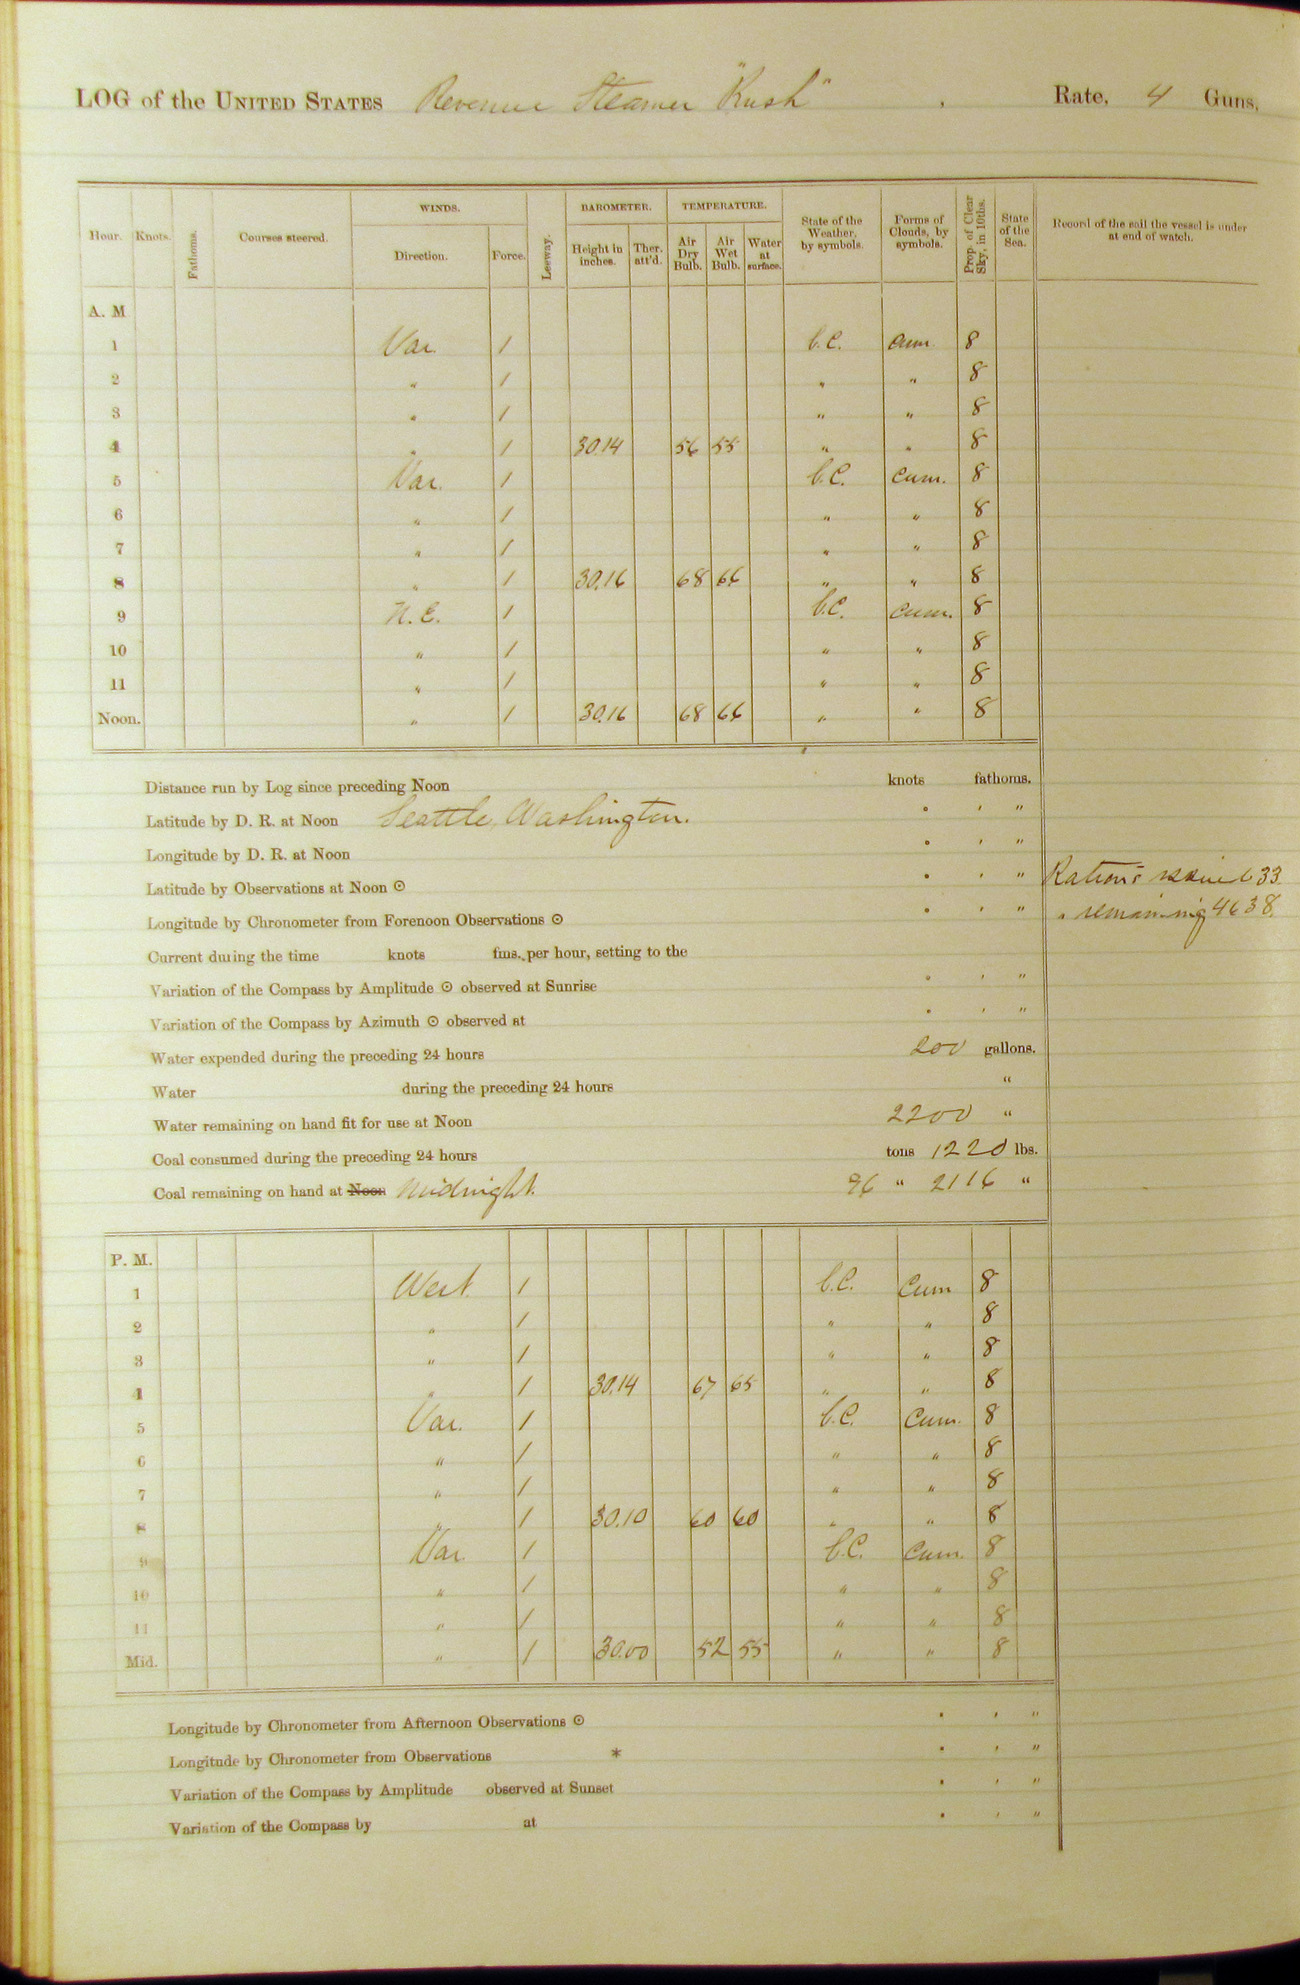 LOG of the UNITED STATES Revenue Steamer "Rush", Rate, 4 Guns,
WINDS. BAROMETER. TEMPERATURE.
Hour. Knots. Fathoms. Courses steered. Direction. Force. Leeway. Height in inches. Ther. att'd. Air Dry Bulb. Air Wet Bulb. Water at surface. State of the Weather, by symbols. Forms of Clouds, by symbols. Prop. of Clear Sky, in 10ths. State of the Sea. Record of the sail the vessel is under at end of watch.
A. M
1 Var. 1 b.c. Cum. 8
2 " 1 " " 8
3 " 1 " " 8
4 " 1 30.14 56 55 " " 8
5 Var. 1 b.c. Cum. 8
6 " 1 " " 8
7 " 1 " " 8
8 " 1 30.16 68 66 " " 8
9 N.E. 1 b.c. Cum. 8
10 " 1 " " 8
11 " 1 " " 8
Noon. " 1 30.16 68 66 " " 8
Distance run by Log since preceding Noon knots fathoms.
Latitude by D. R. at Noon Seattle, Washington. ° ' "
Longitude by D. R. at Noon ° ' "
Latitude by Observations at Noon ⊙ ° ' " Rations issued 33.
Longitude by Chronometer from Forenoon Observations ⊙ ° ' " " remaining 4638.
Current during the time knots fms. per hour, setting to the
Variation of the Compass by Amplitude ⊙ observed at Sunrise ° ' "
Variation of the Compass by Azimuth ⊙ observed at ° ' "
Water expended during the preceding 24 hours 200 gallons.
Water during the preceding 24 hours "
Water remaining on hand fit for use at Noon 2200 "
Coal consumed during the preceding 24 hours tons 1220 lbs.
Coal remaining on hand at Noon Midnight. 96 " 2116 "
P. M.
1 West. 1 b.c. Cum 8
2 " 1 " " 8
3 " 1 " " 8
4 " 1 30.14 67 65 " " 8
5 Var. 1 b.c. Cum. 8
6 " 1 " " 8
7 " 1 " " 8
8 " 1 30.10 60 60 " " 8
9 Var. 1 b.c. Cum. 8
10 " 1 " " 8
11 " 1 " " 8
Mid. " 1 30.00 52 55 " " 8
Longitude by Chronometer from Afternoon Observations ⊙ ° ' "
Longitude by Chronometer from Observations * ° ' "
Variation of the Compass by Amplitude observed at Sunset ° ' "
Variation of the Compass by at ° ' "